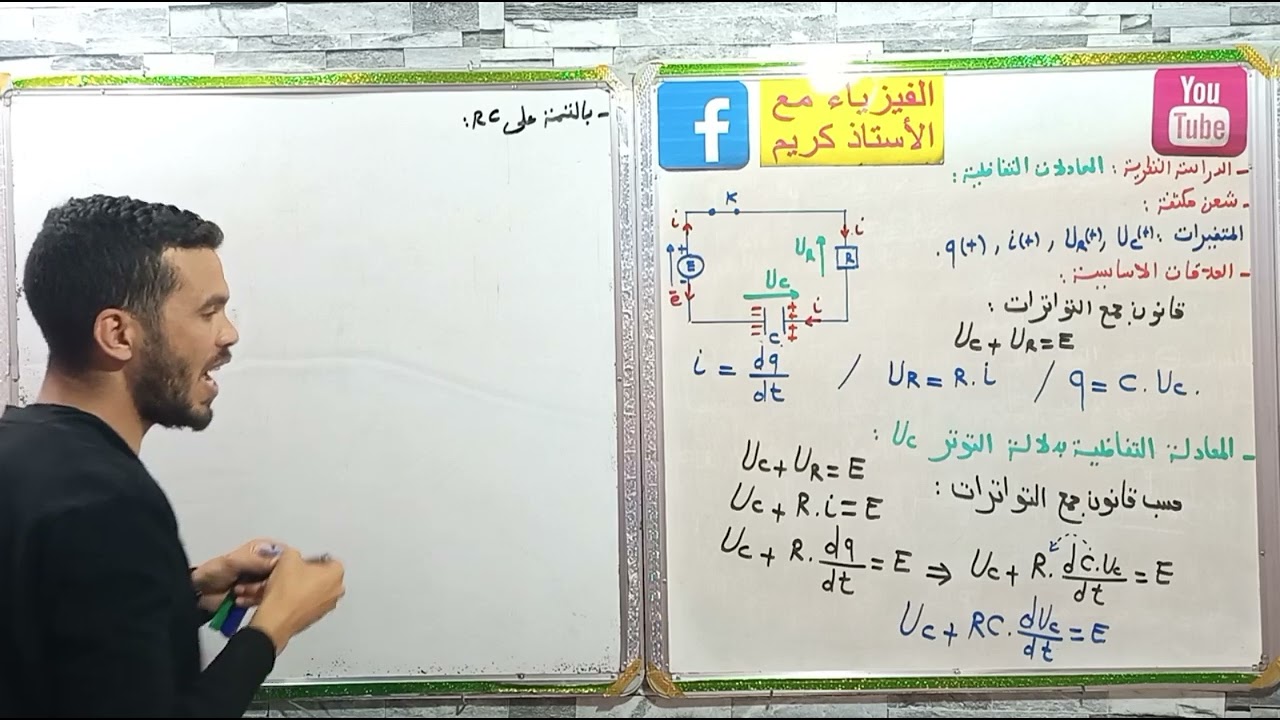 - بالقسمة على RC:
f
الفيزياء مع
الأستاذ كريم
You
Tube
- الدراسة النظرية: المعادلات التفاضلية:
- شحن مكثفة:
المتغيرات: q(t), i(t), UR(t), Uc(t).
- العلاقات الاساسية:
قانون جمع التواترات:
Uc + UR = E
K
i
i
+
E
-
ē
UR
R
Uc
i
C
i = dq/dt / UR = R.i / q = C.Uc.
- المعادلة التفاضلية بدلالة التوتر Uc:
حسب قانون جمع التواترات:
Uc + UR = E
Uc + R.i = E
Uc + R.dq/dt = E ⇒ Uc + R.dC.Uc/dt = E
Uc + RC.dUc/dt = E